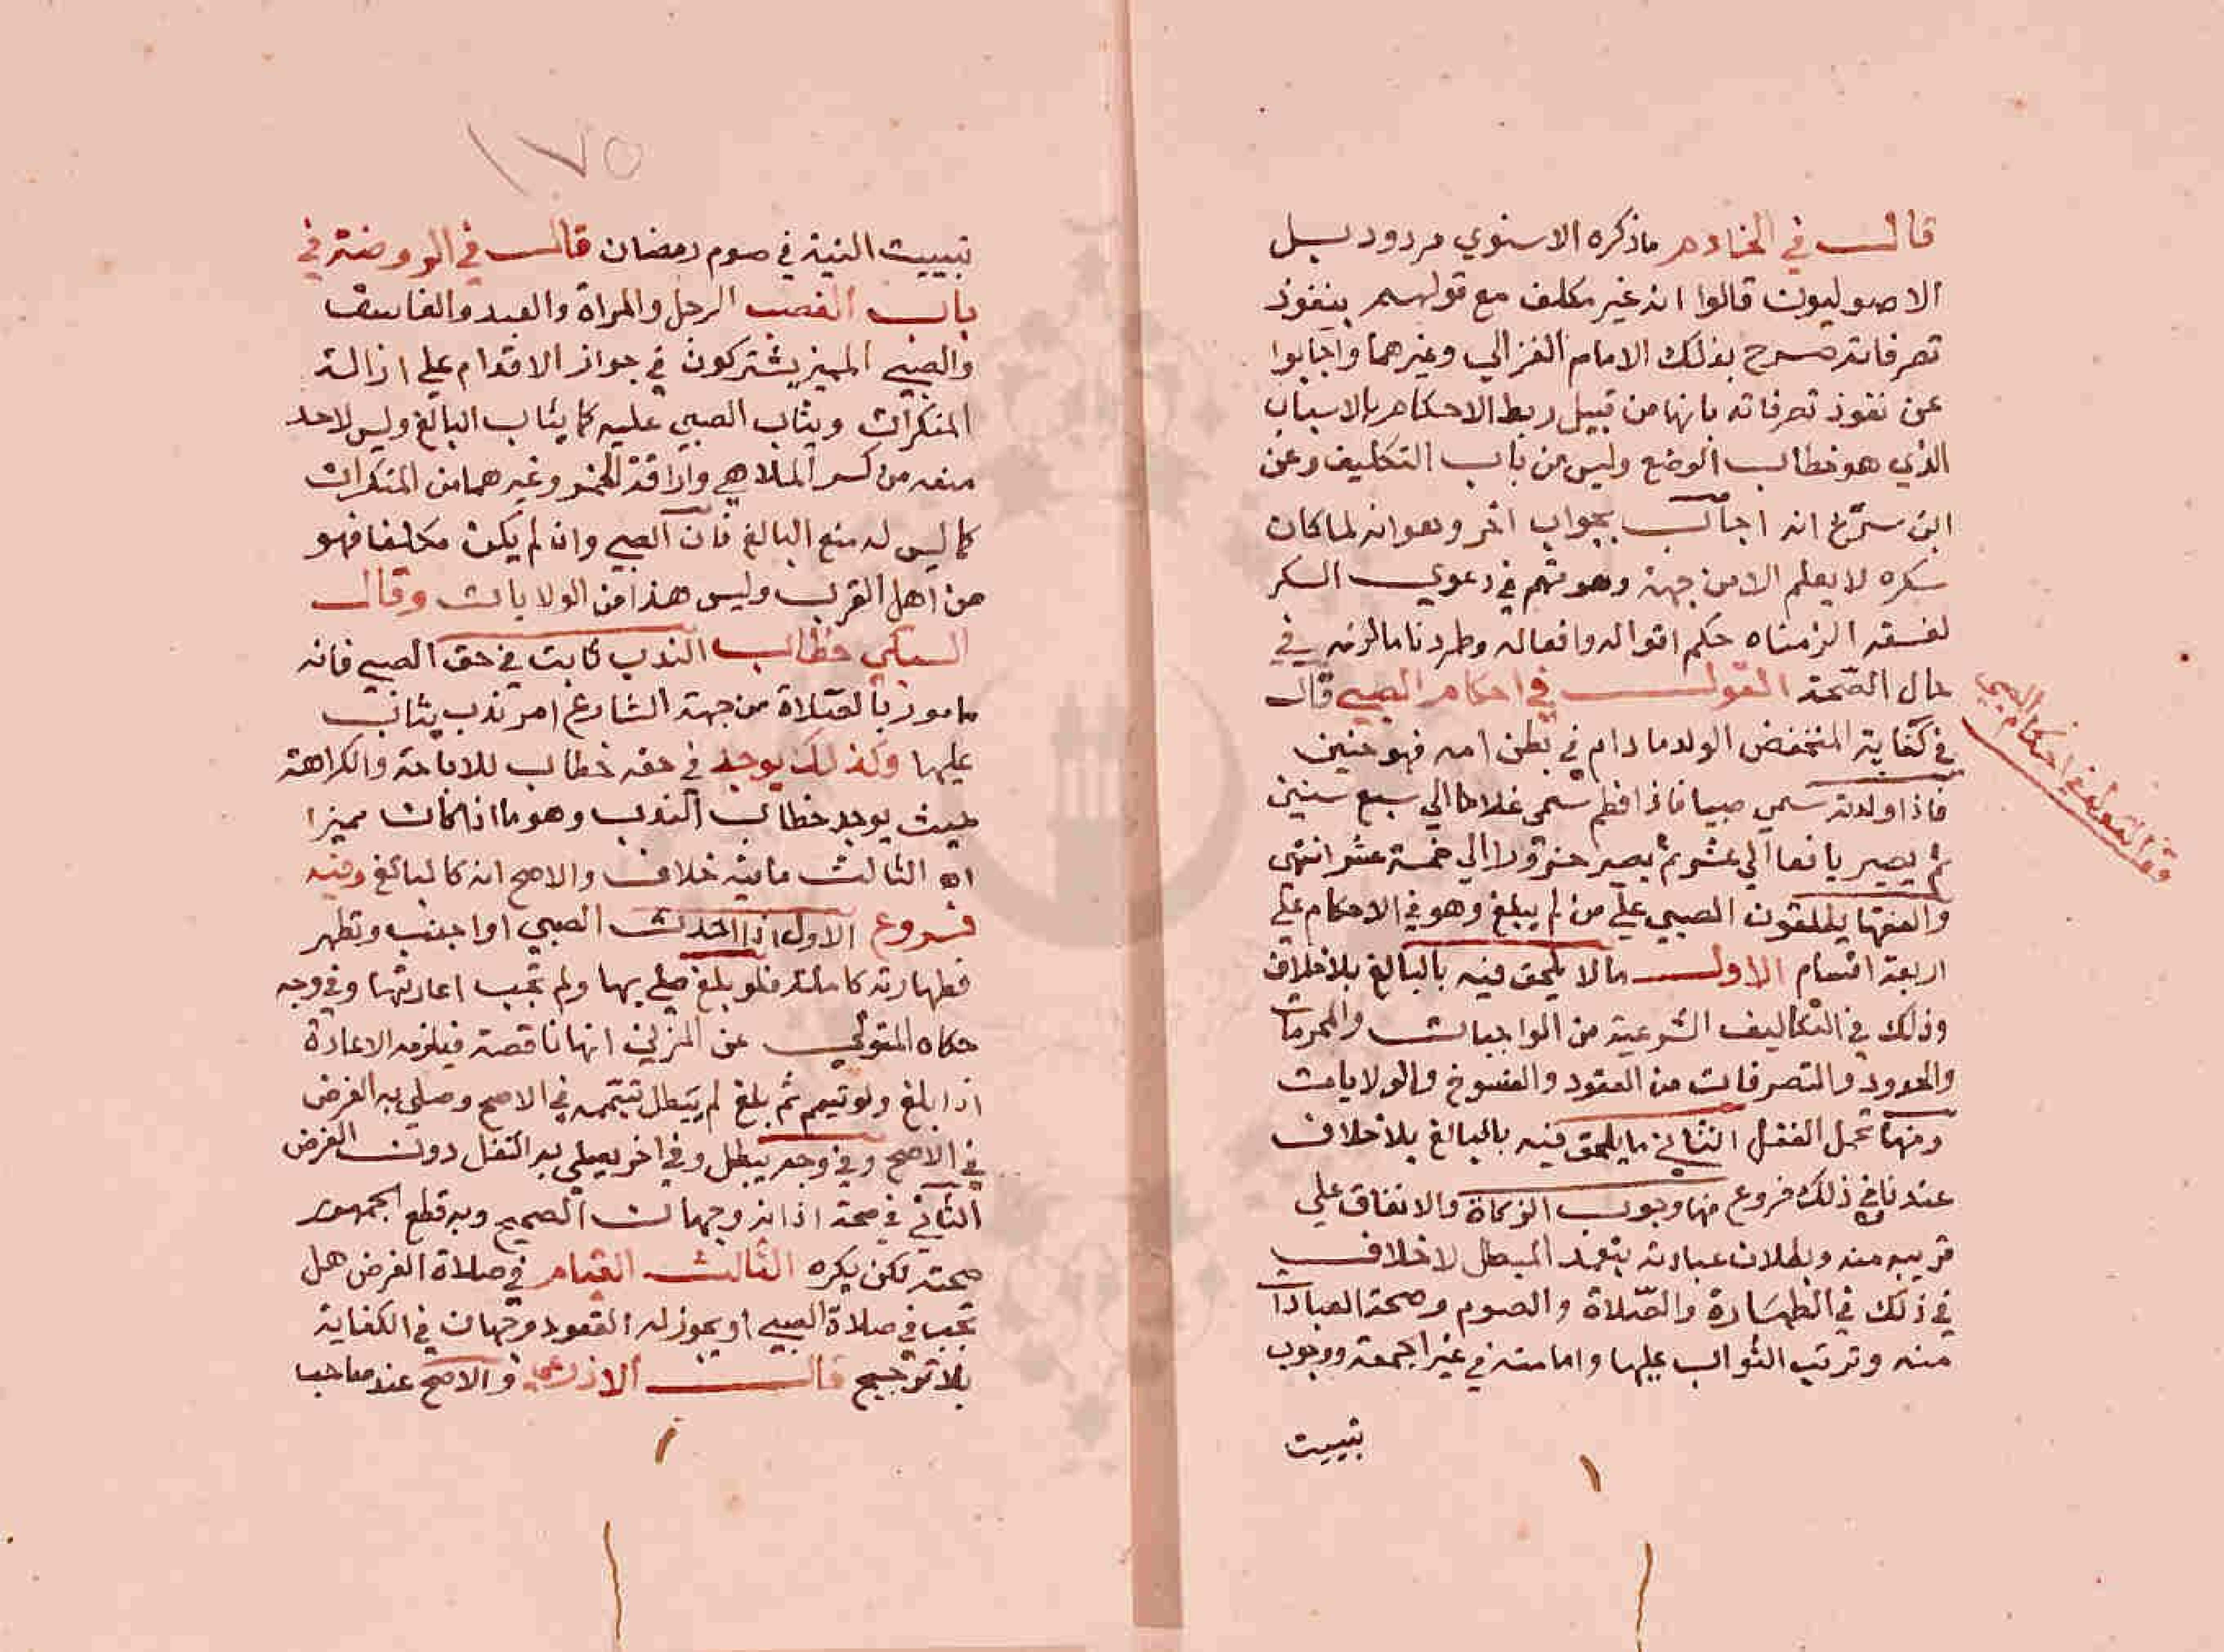 قال في الخادم ماذكره الاسنوي مردود بل
الاصوليون قالوا انه غير مكلف مع قولهم بنفوذ
تصرفاته صرح بذلك الامام الغزالي وغيرهما واجابوا
عن نفوذ تصرفاته بانها من قبيل ربط الاحكام بالاسباب
الذي هو خطاب الوضع وليس من باب التكليف وعن
ابن سريج انه اجاب بجواب اخر وهو انه لما كان
سكره لا يعلم الا من جهته وهو متهم في دعوي السكر
لفسقه الزمناه حكم اقواله وافعاله وطردنا مالزمه في
حال الصحة القول في احكام الصبي قال
في كفاية المتحفض الولد مادام في بطن امه فهو جنين
فاذا ولدته سمي صبيا فاذا فطم سمي غلاما الي سبع سنين
ثم يصير يافعا الي عشر ثم يصير حزورا الي خمسة عشر انتهى
والفقها يطلقون الصبي علي من لم يبلغ وهو في الاحكام علي
اربعة اقسام الاول مالا يلحق فيه بالبالغ بلاخلاف
وذلك في التكاليف الشرعية من الواجبات والمحرمات
والحدود والتصرفات من العقود والفسوخ والولايات
ومنها تحمل العقل الثاني مايلحق فيه بالبالغ بلاخلاف
عندنا في ذلك فروع منها وجوب الزكاة والانفاق علي
قريبه منه وبطلان عبادته بتعمد المبطل لاخلاف
في ذلك في الطهارة والصلاة والصوم وصحة العبادات
منه وترتب الثواب عليها وامامته في غير الجمعة ووجوب
تبييت
قف القول في احكام الصبي
١٧٥
تبييت النية في صوم رمضان قال في الروضة في
باب الغصب الرجل والمراة والعبد والفاسق
والصبي المميز يشتركون في جواز الاقدام علي ازالة
المنكرات ويثاب الصبي عليه كما يثاب البالغ وليس لاحد
منعه من كسر الملاهي واراقة الخمر وغيرهما من المنكرات
كما ليس له منع البالغ فان الصبي وان لم يكن مكلفا فهو
من اهل القرب وليس هذا من الولايات وقال
السبكي خطاب الندب ثابت في حق الصبي فانه
مامور بالصلاة من جهة الشارع امر ندب يثاب
عليها وكذلك يوجد في حقه خطاب للاباحة والكراهة
حيث يوجد خطاب الندب وهو ما اذا كان مميزا
اه الثالث مافيه خلاف والاصح انه كالبالغ وفيه
فروع الاول اذا احدث الصبي او اجنب وتطهر
فطهارته كاملة فلو بلغ صلي بها ولم تجب اعادتها وفي وجه
حكاه المتولي عن المزني انها ناقصة فيلزمه الاعادة
اذا بلغ ولو تيمم ثم بلغ لم يبطل تيممه في الاصح وصلي به الفرض
في الاصح وفي وجه يبطل وفي اخر يصلي به النفل دون الفرض
الثاني في صحة اذانه وجهان الصحيح وبه قطع الجمهور
صحته لكن يكره الثالث القيام في صلاة الفرض هل
تجب في صلاة الصبي او يجوز له القعود وجهان في الكفاية
بلا ترجيح قال الاذرعي والاصح عند صاحب